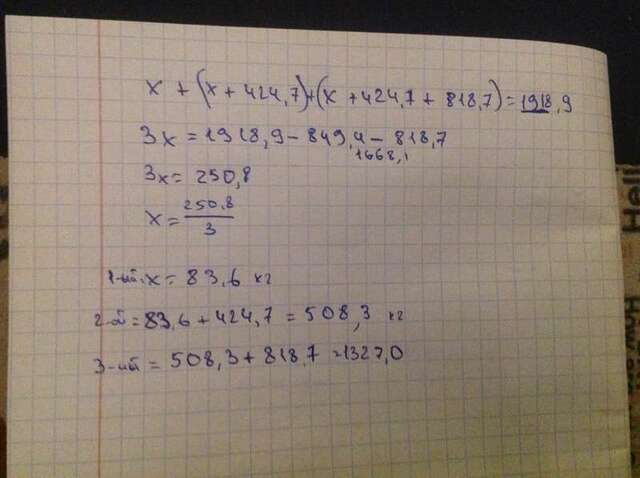 x + (x + 424,7)+(x + 424,7 + 818,7) = 1918,9
3x = 1918,9 - 849,4 - 818,7
1668,1
3x = 250,8
x = 250,8
3
1-ый. x = 83,6 кг
2-й = 83,6 + 424,7 = 508,3 кг
3-ий = 508,3 + 818,7 = 1327,0
Hell